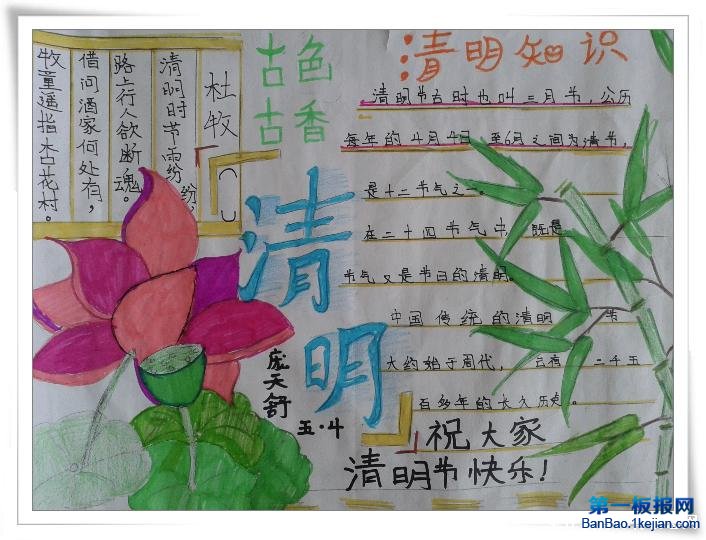 古色
古香
杜牧
清明时节雨纷纷,
路上行人欲断魂。
借问酒家何处有,
牧童遥指杏花村。
清明
庞天舒
五·4
清明知识
清明节古时也叫三月节,公历
每年的4月4日 至6月之间为清节,
是十二节气之一。
在二十四节气中, 既是
节气又是节日的清明。
中国传统的清明 节
大约始于周代, 二千五
百多年的长久历史。
祝大家
清明节快乐!
第一板报网
BanBao.1kejian.com